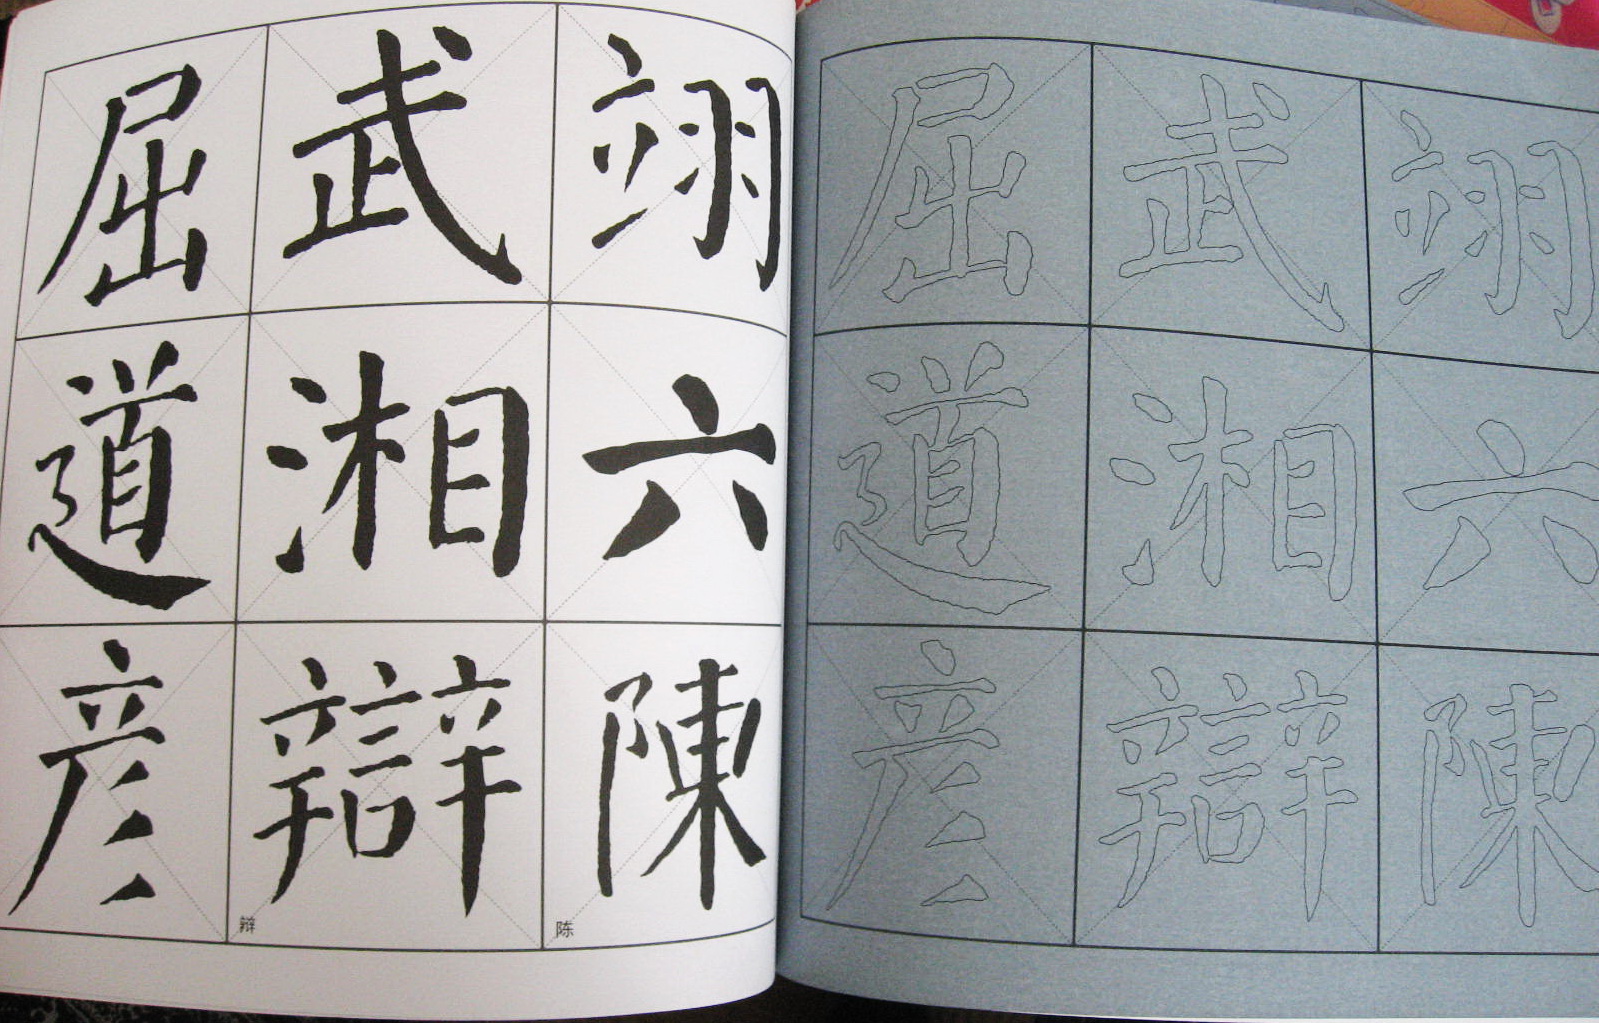 屈武翊
道湘六
彦辯陳
辩 陈
屈武翊
道湘六
彦辯陳